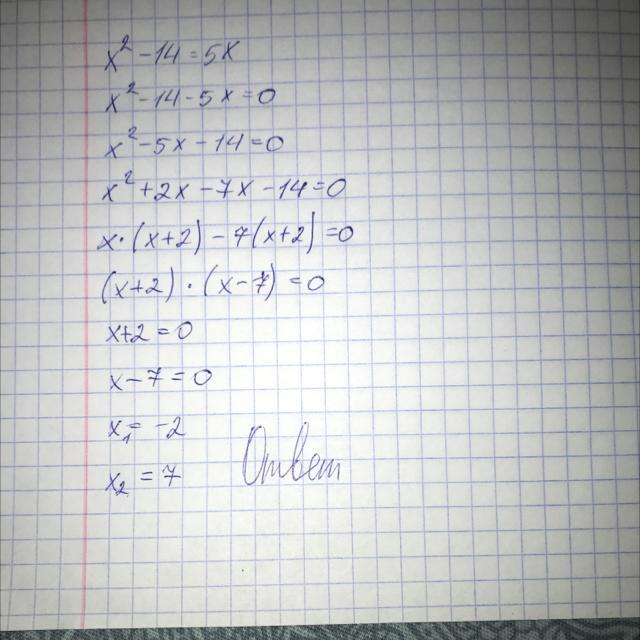 x² - 14 = 5x
x² - 14 - 5x = 0
x² - 5x - 14 = 0
x² + 2x - 7x - 14 = 0
x · (x + 2) - 7(x + 2) = 0
(x + 2) · (x - 7) = 0
x + 2 = 0
x - 7 = 0
x₁ = -2
x₂ = 7
Ответ